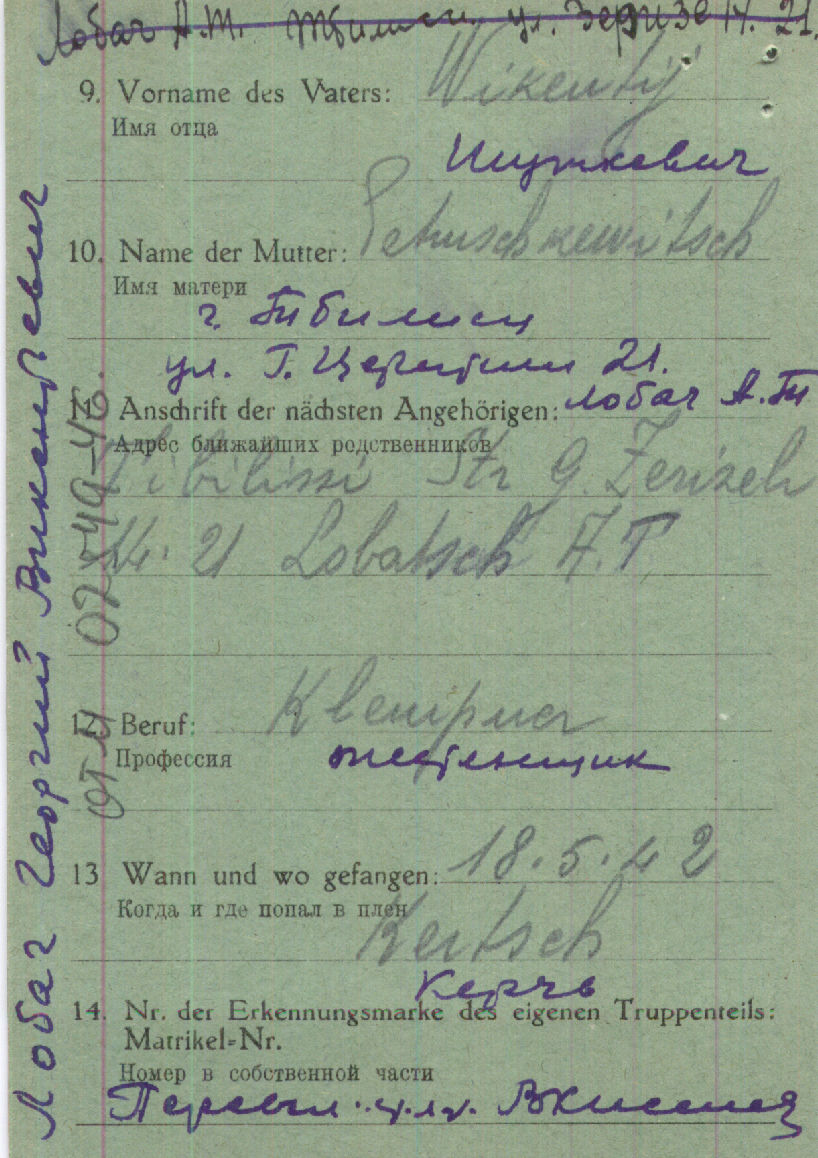 Лобач А.Т. Тбилиси ул. Зеризе 14. 21.
9. Vorname des Vaters: Wikentij
Имя отца
Пушкевич
10. Name der Mutter: Petruschkewitsch
Имя матери
г. Тбилиси
ул. Г. Церетели 21.
11. Anschrift der nächsten Angehörigen: Лобач А.Т
Адрес ближайших родственников
Tibilissi Str G. Zerizeh
14. 21 Lobatsch A.T.
12. Beruf: Klempner
Профессия
жестянщик
13 Wann und wo gefangen: 18.5.42
Когда и где попал в плен
Kertsch
Керчь
14. Nr. der Erkennungsmarke des eigenen Truppenteils:
Matrikel-Nr.
Номер в собственной части
Лобач Георгий Викентьевич